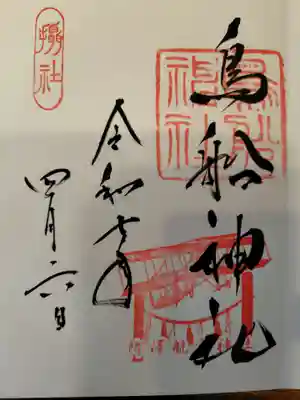 摂社
鳥船神社
鳥船神社
令和七年
四月六日